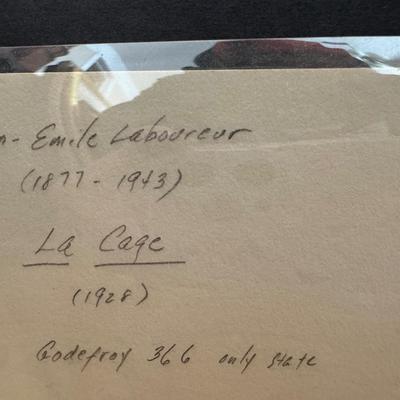 n- Emile Laboureur
(1877 - 1943)
La Cage
(1928)
Godefroy 366 only state